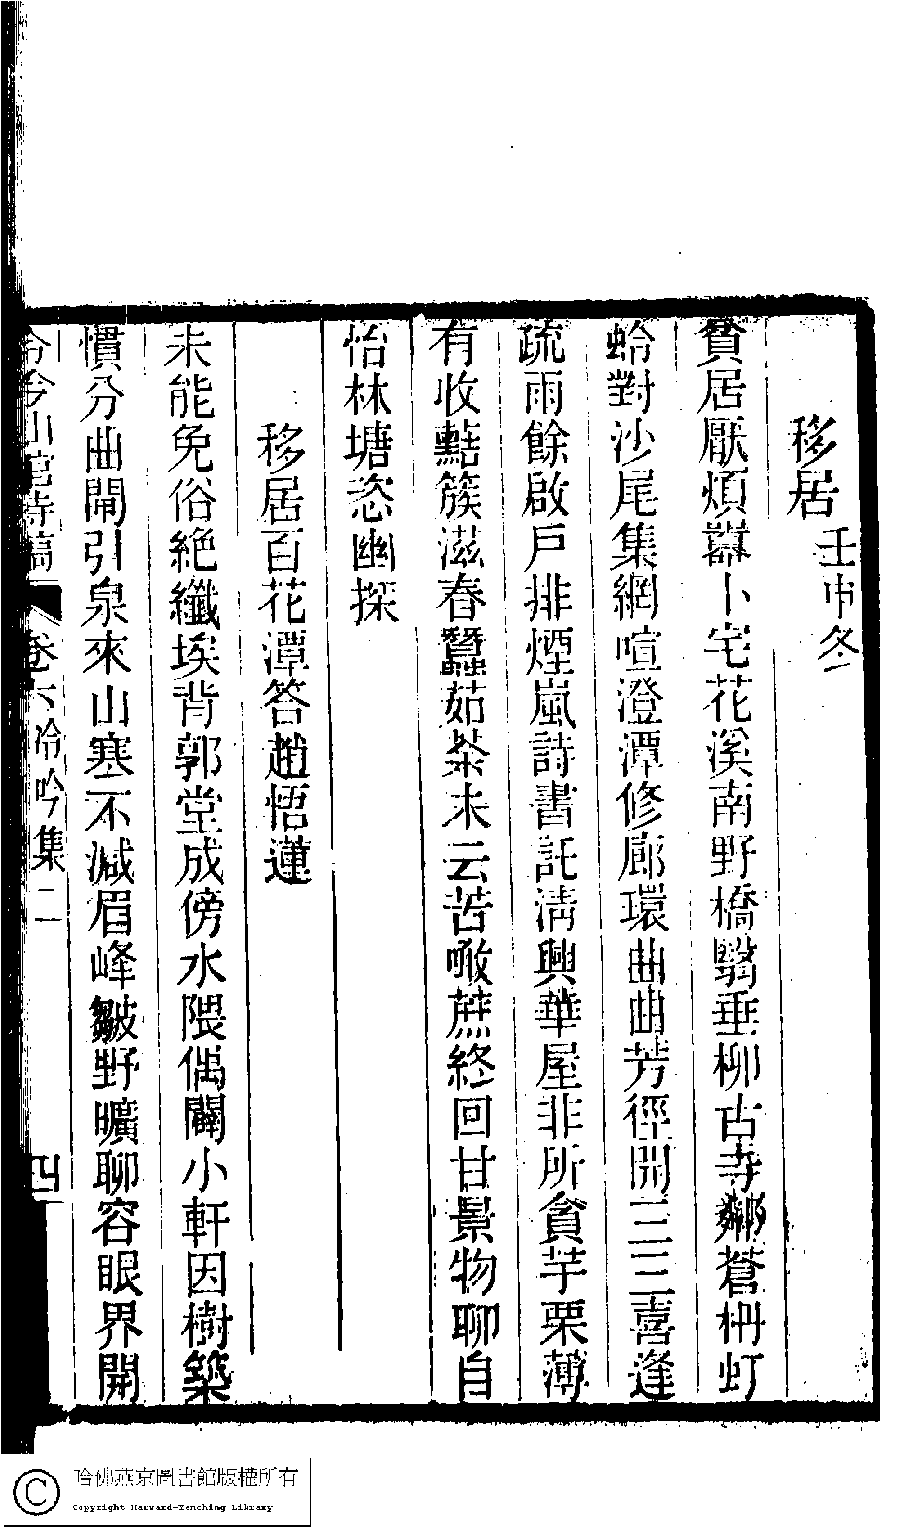 移居 壬申冬
貧居厭煩囂卜宅花溪南野橋翳垂柳古寺鄰蒼枏虰
蛉對沙尾集網喧澄潭修廊環曲曲芳徑開三三喜逢
疏雨餘啟戶排煙嵐詩書託淸興華屋非所貪芋栗薄
有收簇滋春蠶茹荼未云苦噉蔗終回甘景物聊自
怡林塘恣幽探
移居百花潭答趙悟蓮
未能免俗絕纖埃背郭堂成傍水隈偶闢小軒因樹築
慣分曲閘引泉來山塞不減眉峰皺野曠聊容眼界開
山館詩稿 卷六 冷吟集二 四
哈佛燕京圖書館版權所有
Copyright Harvard-Yenching Library